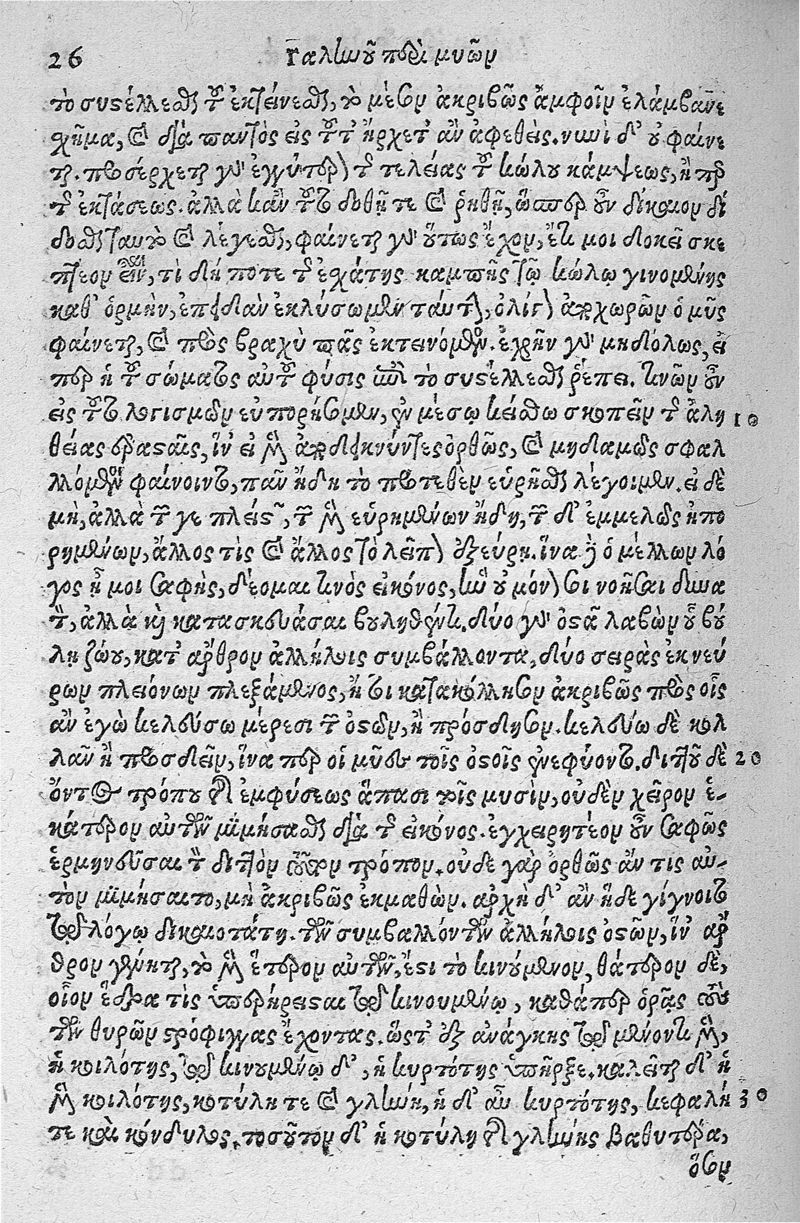 26 Γαληνοῦ περὶ μυῶν
τὸ συστέλλεσθαι τοῦ ἐκτείνεσθαι, τὸ μέσον ἀκριβῶς ἀμφοῖν ἐλάμβανε
σχῆμα, καὶ διὰ παντὸς εἰς τοῦτ᾽ ἤρχετ᾽ ἂν ἀφεθείς. νυνὶ δ᾽ οὐ φαίνε
ται. προσέρχεται γὰρ ἐγγύτερον τῆς τελείας τοῦ κώλου κάμψεως, ἤπερ
τῆς ἐκτάσεως. ἀλλὰ κἂν τοῦτο δοθῇ τε καὶ ῥηθῇ, ὥσπερ οὖν δίκαιον δί
δοσθαι ταυτὸ καὶ λέγεσθαι, φαίνεται γὰρ οὕτως ἔχον, ἔτι μοι δοκεῖ σκε
πτέον εἶναι, τί δή ποτε τῆς ἐσχάτης καμπῆς τῷ κώλῳ γινομένης
καθ᾽ ὁρμὴν, ἐπειδὰν ἐκλύσωμεν ταύτην, ὀλίγον ἀποχωρῶν ὁ μῦς
φαίνεται, καὶ πρὸς βραχὺ πᾶς ἐκτεινόμενος. ἐχρῆν γὰρ μηδόλως, εἴ
περ ἡ τοῦ σώματος αὐτοῦ φύσις ἐπὶ τὸ συστέλλεσθαι ῥέπει. τινῶν οὖν
εἰς τοῦτο λογισμῶν εὐπορήσομεν, ἐν μέσῳ κείσθω σκοπεῖν τῆς ἀλη 10
θείας ἐρασταῖς, ἵν᾽ εἰ μὲν ἀποδεικνύντες ὀρθῶς, καὶ μηδαμῶς σφαλ
λόμενοι φαίνοιντο, πᾶν ἤδη τὸ προτεθὲν εὑρῆσθαι λέγοιμεν. εἰ δὲ
μὴ, ἀλλὰ τῶν γε πλείστων, τῶν μὲν εὑρημένων ἤδη, τῶν δ᾽ ἐμμελῶς ἠπο
ρημένων, ἄλλος τὶς καὶ ἄλλος τὸ λεῖπον ἐξεύρῃ. ἵνα δὲ ὁ μέλλων λό
γος ᾖ μοι σαφὴς, δέομαι τινὸς εἰκόνος, ἣν οὐ μόνον σοι νοῆσαι δυνα
τὸν, ἀλλὰ καὶ κατασκευάσαι βουληθέντι. δύο γὰρ ὀστᾶ λαβὼν οὗ βού
λῃ ζώου, κατ᾽ ἄρθρον ἀλλήλοις συμβάλλοντα, δύο σειρὰς ἐκ νεύ
ρων πλειόνων πλεξάμενος, ἤτοι κατακόλλησον ἀκριβῶς πρὸς οἷς
ἂν ἐγὼ κελεύσω μέρεσι τῶν ὀστῶν, ἢ πρόσδησον. κελεύω δὲ κολ
λᾶν ἢ προσδεῖν, ἵνα περ οἱ μῦες τοῖς ὀστοῖς ἐνεφύοντο. διττοῦ δὲ 20
ὄντος τρόπου τῆς ἐμφύσεως ἅπασι τοῖς μυσὶν, οὐδὲν χεῖρον ἑ-
κάτερον αὐτῶν μιμήσασθαι διὰ τῆς εἰκόνος. ἐγχειρητέον οὖν σαφῶς
ἑρμηνεῦσαι τὸν διττὸν τρόπον. οὐδὲ γὰρ ὀρθῶς ἄν τις αὐ-
τὸν μιμήσαιτο, μὴ ἀκριβῶς ἐκμαθὼν. ἀρχὴ δ᾽ ἂν ἥδε γίγνοιτο
τῷ λόγῳ δικαιοτάτη. τῶν συμβαλλόντων ἀλλήλοις ὀστῶν, ἵν᾽ ἄρ
θρον γένηται, τὸ μὲν ἕτερον αὐτῶν, ἐστὶ τὸ κινούμενον, θάτερον δὲ,
οἷον ἕδρα τις ὑπερήρεισται τῷ κινουμένῳ, καθάπερ ὁρᾷς τοὺς
τῶν θυρῶν στρόφιγγας ἔχοντας. ὥστ᾽ ἐξ ἀνάγκης τῷ μένοντι μὲν,
ἡ κοιλότης, τῷ κινουμένῳ δ᾽, ἡ κυρτότης ὑπῆρξε. καλεῖται δ᾽ ἡ
μὲν κοιλότης, κοτύλη τε καὶ γλήνη, ἡ δ᾽ αὖ κυρτότης, κεφαλή 30
τε καὶ κόνδυλος. τοσοῦτον δ᾽ ἡ κοτύλη τῆς γλήνης βαθυτέρα,
ὅσον